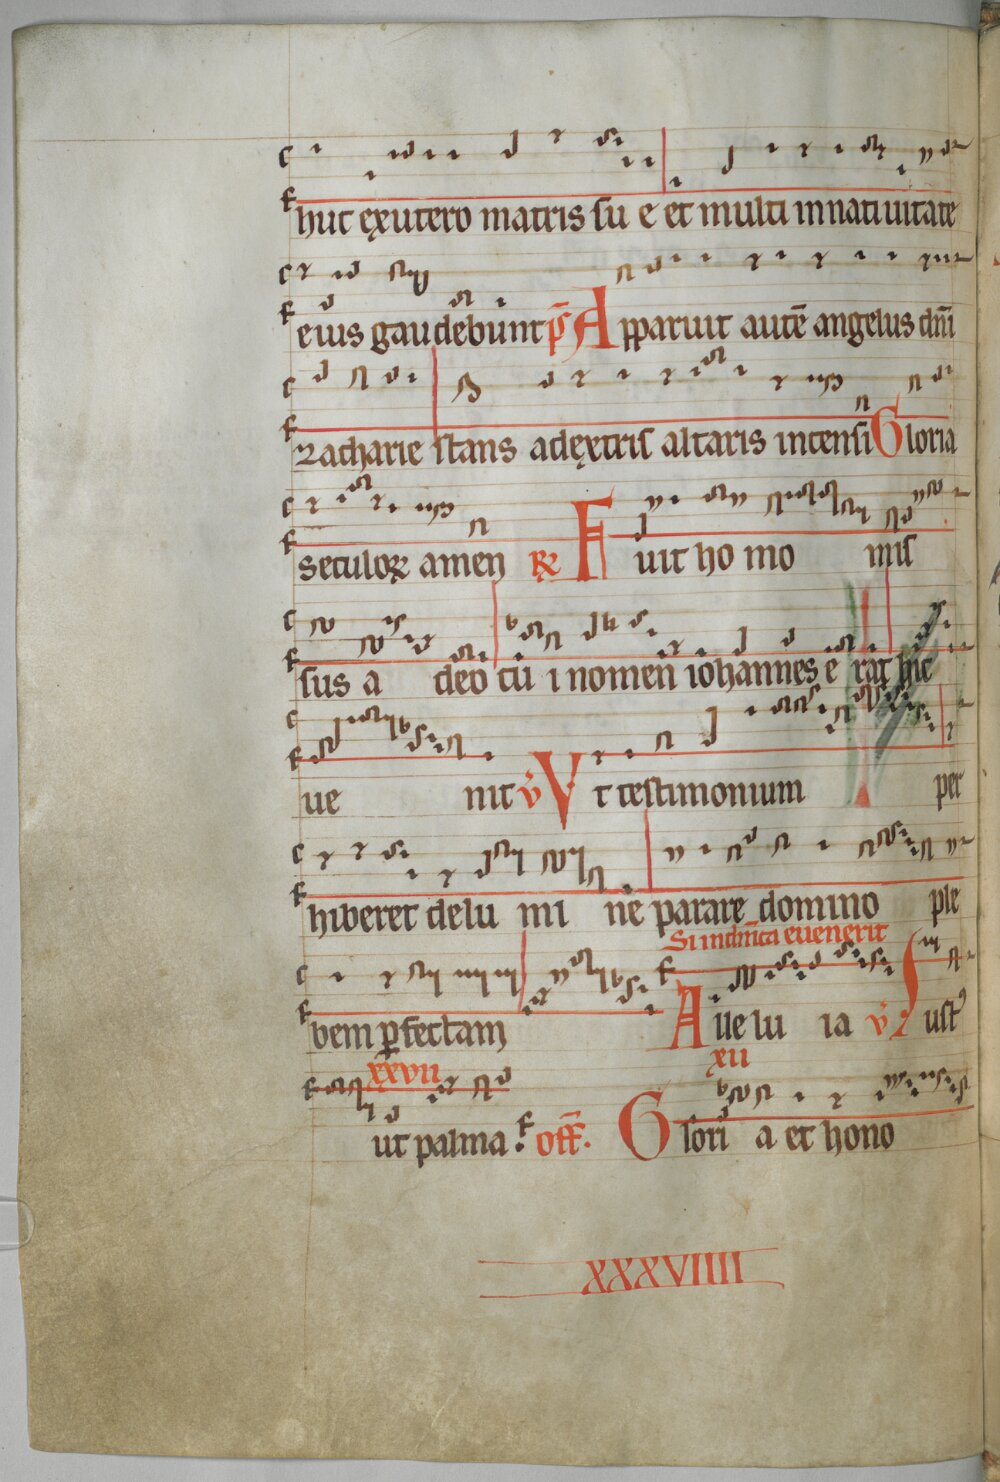 huc exutero matris su e et multi in nativitate
eius gaudebunt ps Apparuit autē angelus dn̄i
zacharie stans adextris altaris incensi Gloria
seculoꝝ amen ℟ Fuit ho mo mis
sus a deo cū i nomen iohannes e rat hic
ue nit v̄ Vt testimonium per
hiberet delu mi ne parare domino ple
Si indn̄ica evenerit
bem ꝑfectam Alle lu ia v̄ Iustꝰ
xxvii xii
ut palma : off̄. Glori a et hono
XXXVIIII